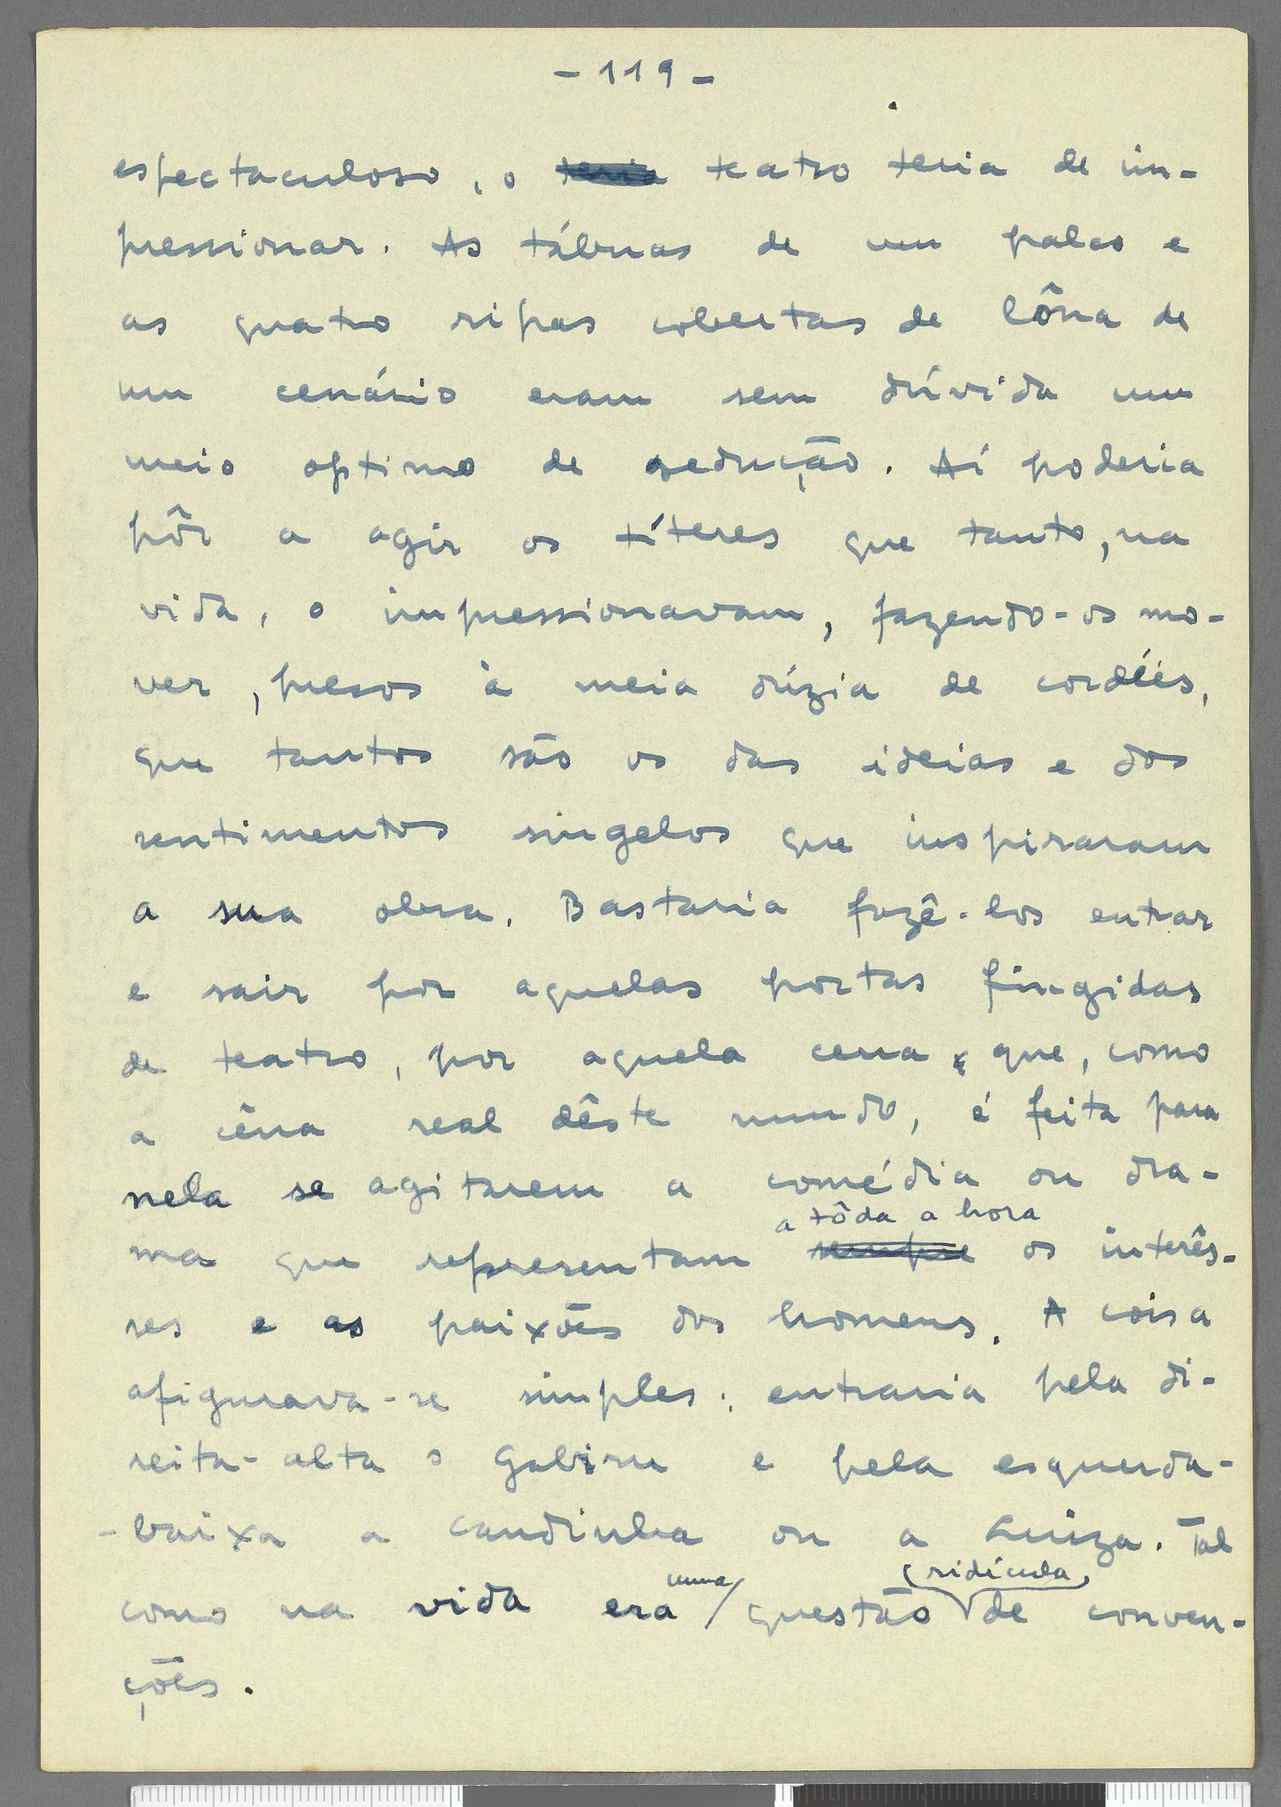 - 119 -
espectaculoso, o teria teatro teria de im-
pressionar. As tábuas de um palco e
as quatro ripas cobertas de lôna de
um cenário eram sem dúvida um
meio optimo de sedução. Aí poderia
pôr a agir os títeres que tanto, na
vida, o impressionavam, fazendo-os mo-
ver, presos à meia dúzia de cordéis,
que tantos são os das ideias e dos
sentimentos singelos que inspiraram
a sua obra. Bastaria fazê-los entrar
e sair por aquelas portas fingidas
de teatro, por aquela cena que, como
a cêna real dêste mundo, é feita para
nela se agitarem a comédia ou dra-
a tôda a hora
ma que representam sempre os interês-
ses e as paixões dos homens. A coisa
afigurava-se simples: entraria pela di-
reita-alta o Gabiru e pela esquerda-
-baixa a Candinha ou a Luiza. Tal
uma ridícula
como na vida era questão de conven-
ções.